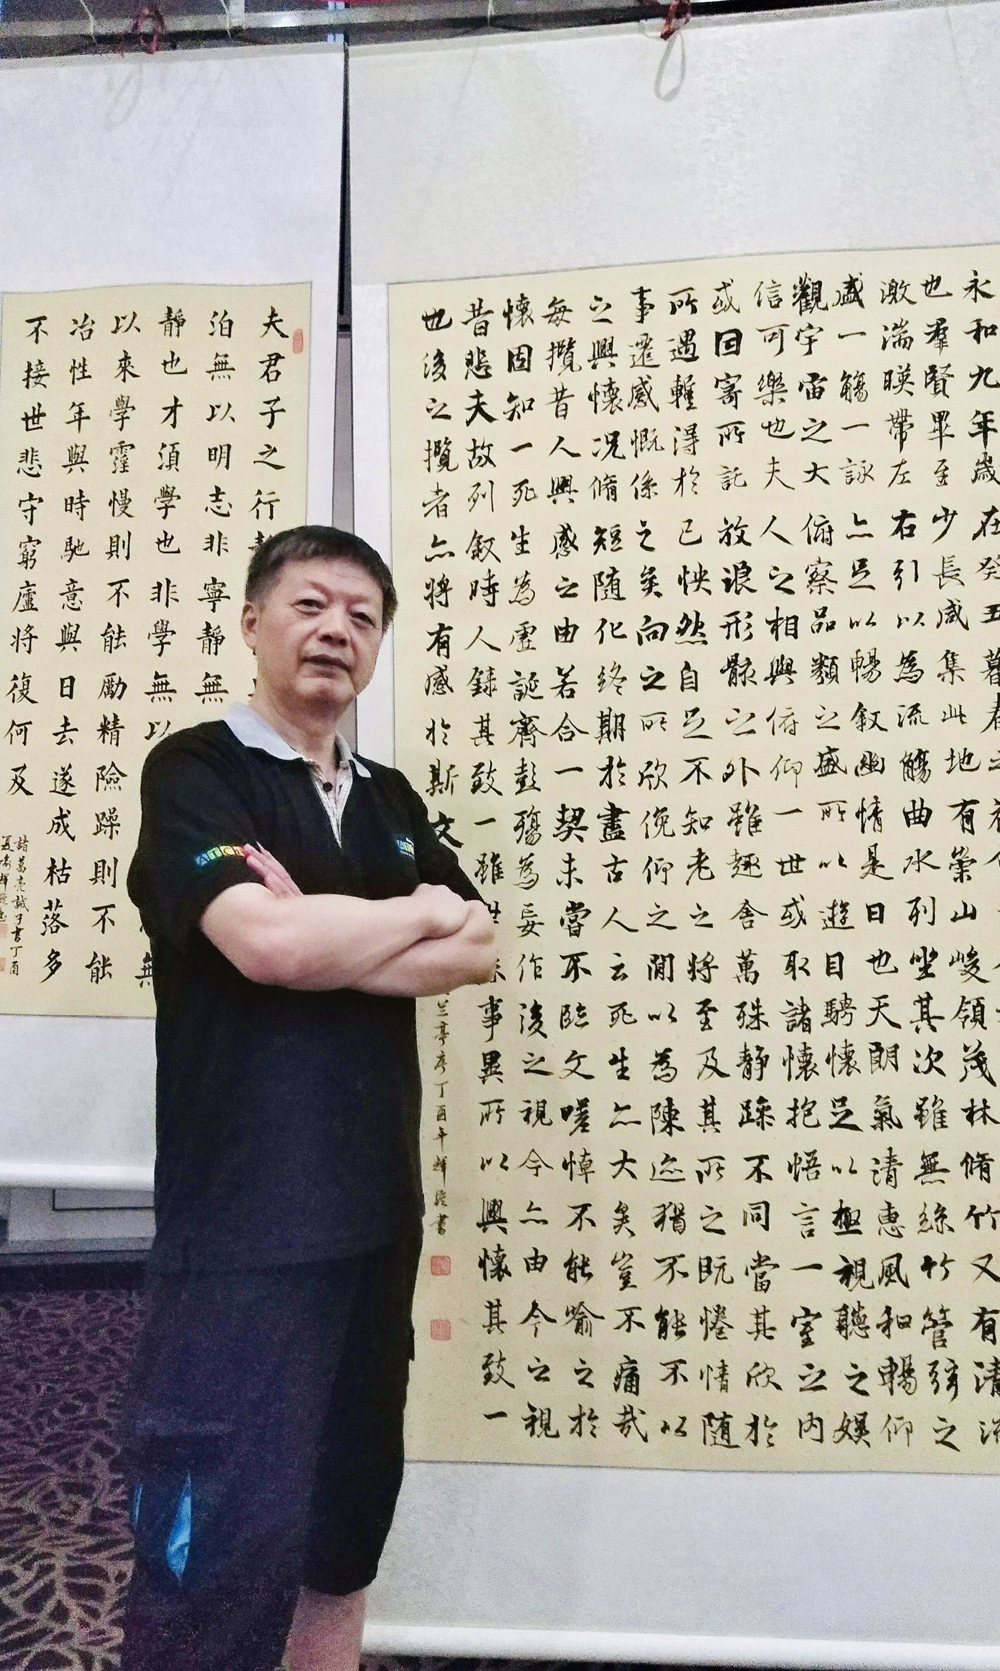 永和九年歲在癸丑暮春之
也羣賢畢至少長咸集此地有崇山峻領茂林脩竹又有清流
激湍暎帶左右引以為流觴曲水列坐其次雖無絲竹管弦之
盛一觴一詠亦足以暢叙幽情是日也天朗氣清惠風和暢仰
觀宇宙之大俯察品類之盛所以遊目騁懷足以極視聽之娛
信可樂也夫人之相與俯仰一世或取諸懷抱悟言一室之内
或回寄所託放浪形骸之外雖趣舍萬殊静躁不同當其欣於
所遇輕得於己怏然自足不知老之將至及其所之既惓情隨
事遷感慨係之矣向之所欣俛仰之間以為陳迹猶不能不以
之興懷况脩短随化終期於盡古人云死生亦大矣豈不痛哉
每攬昔人興感之由若合一契未嘗不臨文嗟悼不能喻之於
懷固知一死生為虛誕齊彭殤為妄作後之視今亦由今之視
昔悲夫故列叙時人錄其致一雖世殊事異所以興懷其致一
也後之攬者亦將有感於斯文
兰亭序丁酉年輝書
夫君子之行
泊無以明志非寧靜無
靜也才須學也非學無以
以來學霪慢則不能勵精險躁則不能
冶性年與時馳意與日去遂成枯落多
不接世悲守窮廬將復何及
諸葛亮誡子書丁酉